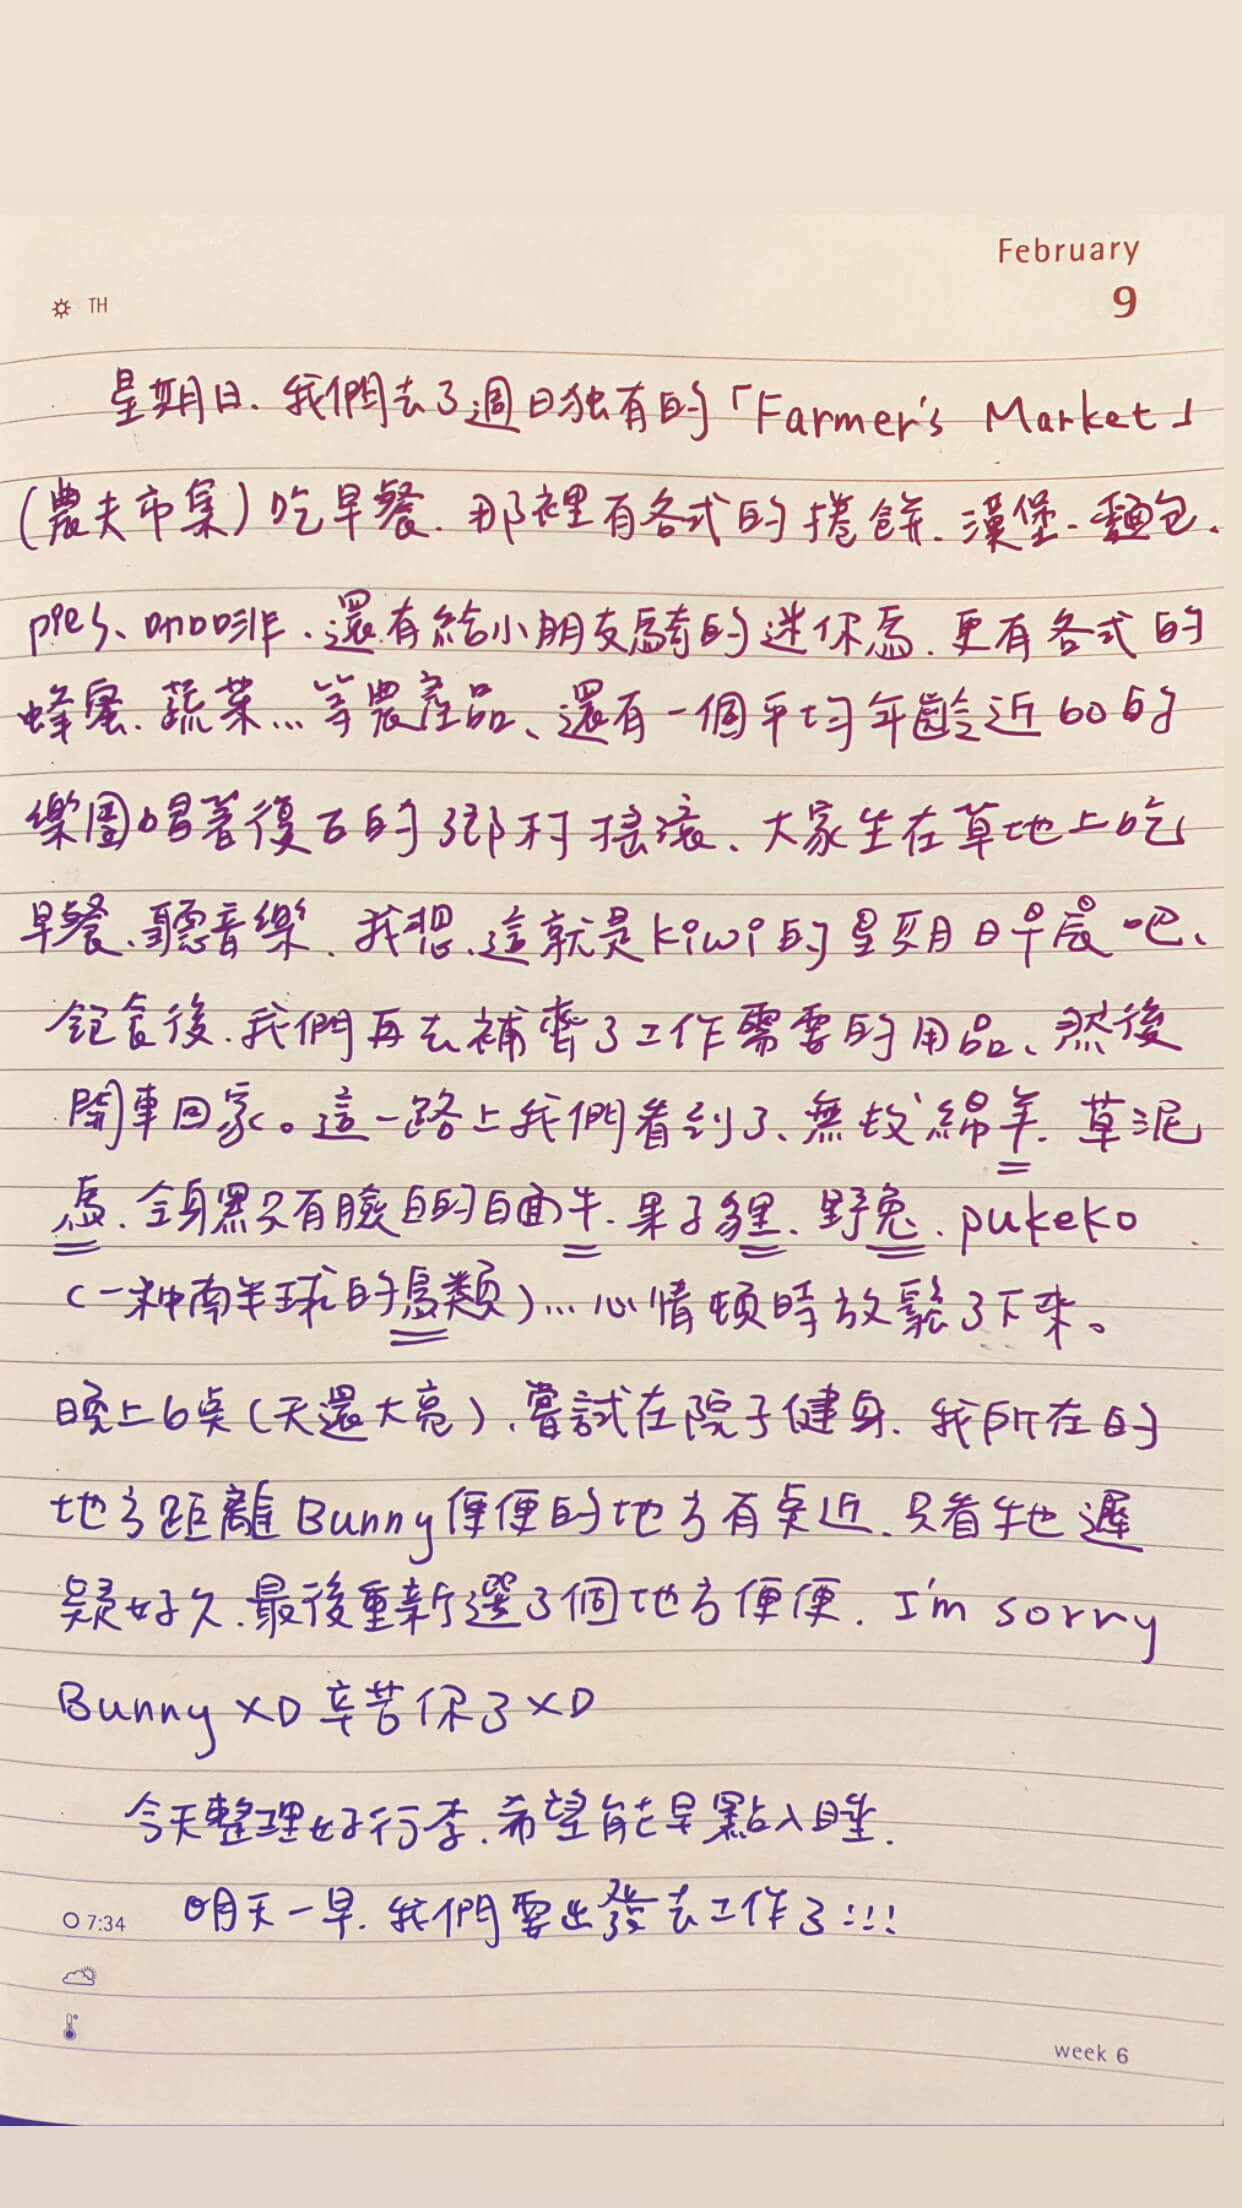 February
9
TH
星期日、我們去了週日独有的「Farmer's Market」
(農夫市集)吃早餐、那裡有各式的捲餅、漢堡、麵包、
pies、咖啡、還有給小朋友騎的迷你馬、更有各式的
蜂蜜、蔬菜...等農產品、還有一個平均年齡近60的
樂團唱著復古的鄉村搖滾、大家坐在草地上吃
早餐、聽音樂、我想、這就是kiwi的星期日早晨吧、
飽食後、我們再去補齊了工作需要的用品、然後
開車回家。這一路上我們看到了、無數綿羊、草泥
馬、全身黑只有臉白的白面牛、果子貍、野兔、pukeko
(一种南半球的鳥類)...心情頓時放鬆了下來。
晚上6点(天還大亮)、嘗試在院子健身、我所在的
地方距離Bunny便便的地方有点近、只看牠遲
疑好久、最後重新選了個地方便便、I'm sorry
Bunny XD 辛苦你了XD
今天整理好行李、希望能早點入睡、
明天一早、我們要出發去工作了!!!
7:34
week 6